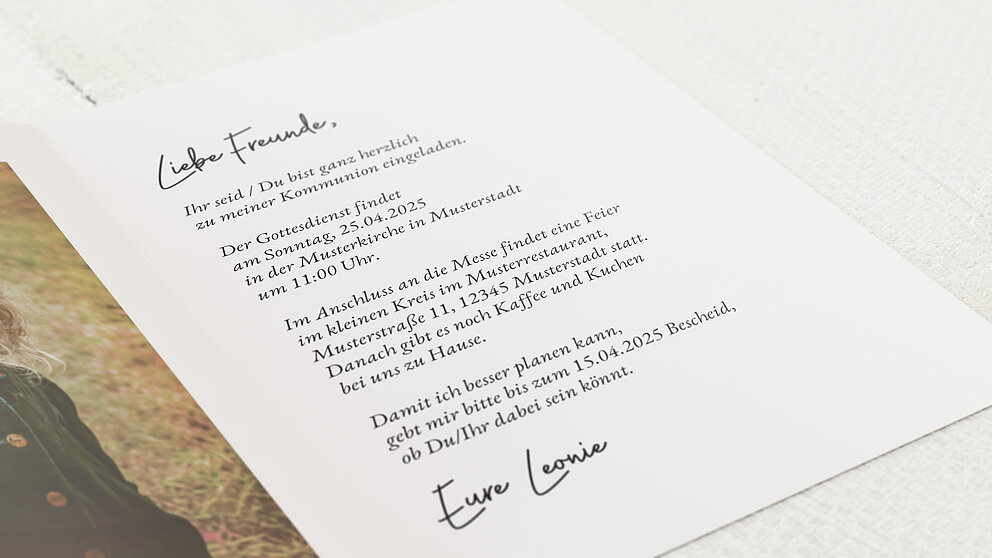 Liebe Freunde,
Ihr seid / Du bist ganz herzlich
zu meiner Kommunion eingeladen.
Der Gottesdienst findet
am Sonntag, 25.04.2025
in der Musterkirche in Musterstadt
um 11:00 Uhr.
Im Anschluss an die Messe findet eine Feier
im kleinen Kreis im Musterrestaurant,
Musterstraße 11, 12345 Musterstadt statt.
Danach gibt es noch Kaffee und Kuchen
bei uns zu Hause.
Damit ich besser planen kann,
gebt mir bitte bis zum 15.04.2025 Bescheid,
ob Du/Ihr dabei sein könnt.
Eure Leonie